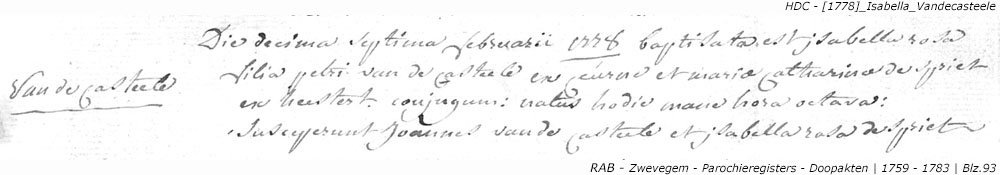 HDC - [1778]_Isabella_Vandecasteele
Die decima septima februarii 1778 baptisata est isabella rosa
Van de Casteele
filia petri van de Casteele ex et mariæ Catharinæ de spriet
ex heestert. conjugum: natus hodie mane hora octava:
susceperunt Joannes vande Casteele et isabella rosa de spriet
RAB - Zwevegem - Parochieregisters - Doopakten | 1759 - 1783 | Blz.93